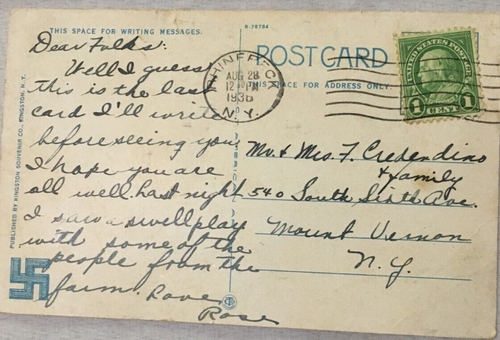 THIS SPACE FOR WRITING MESSAGES.
R-78704
POST CARD
THIS SPACE FOR ADDRESS ONLY.
AUG 28
12 PM
1936
N.Y.
UNITED STATES POSTAGE
1 CENT 1
Dear Folks:
Well I guess
this is the last
card I'll write
before seeing you
I hope you are
all well. Last night
I saw a swell play
with some of the
people from the
farm. Love,
Rose
Mr. & Mrs. F. Credendino
& family
540 South Sixth Ave.
Mount Vernon
N.Y.
PUBLISHED BY KINGSTON SOUVENIR CO., KINGSTON, N. Y.